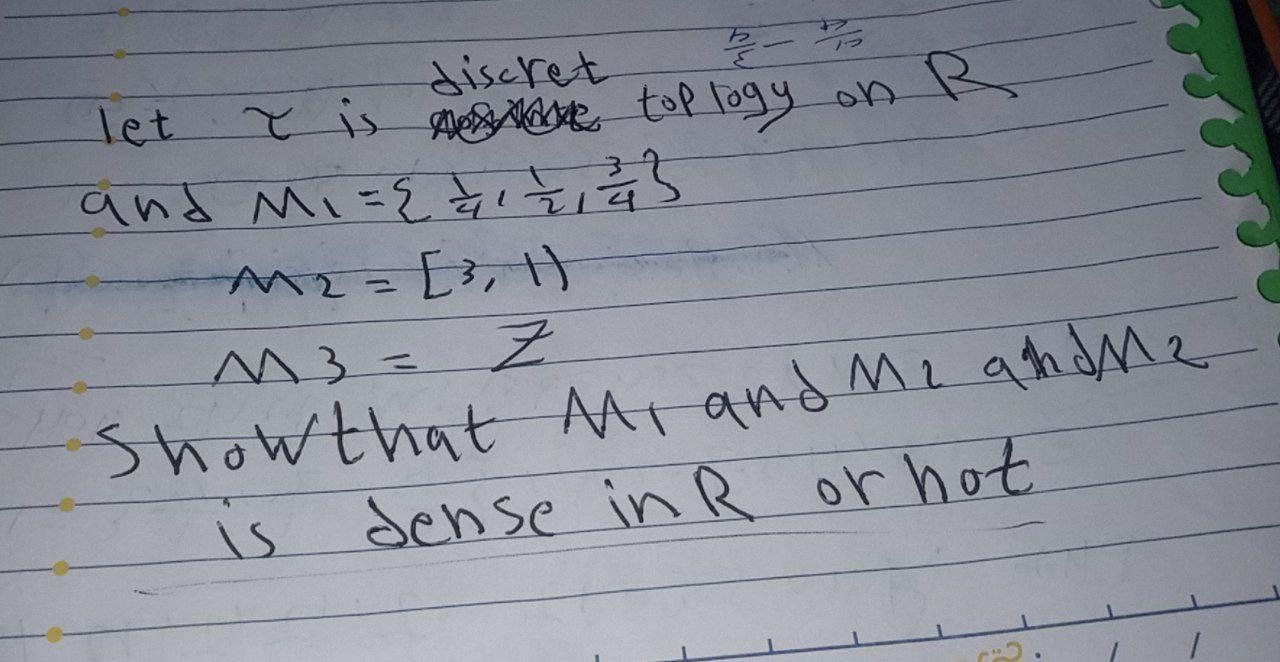 discret
let τ is toplogy on R
and M1 = { 1/4, 1/2, 3/4 }
M2 = [3, 1)
M3 = Z
Show that M1 and M2 and M2
is dense in R or not